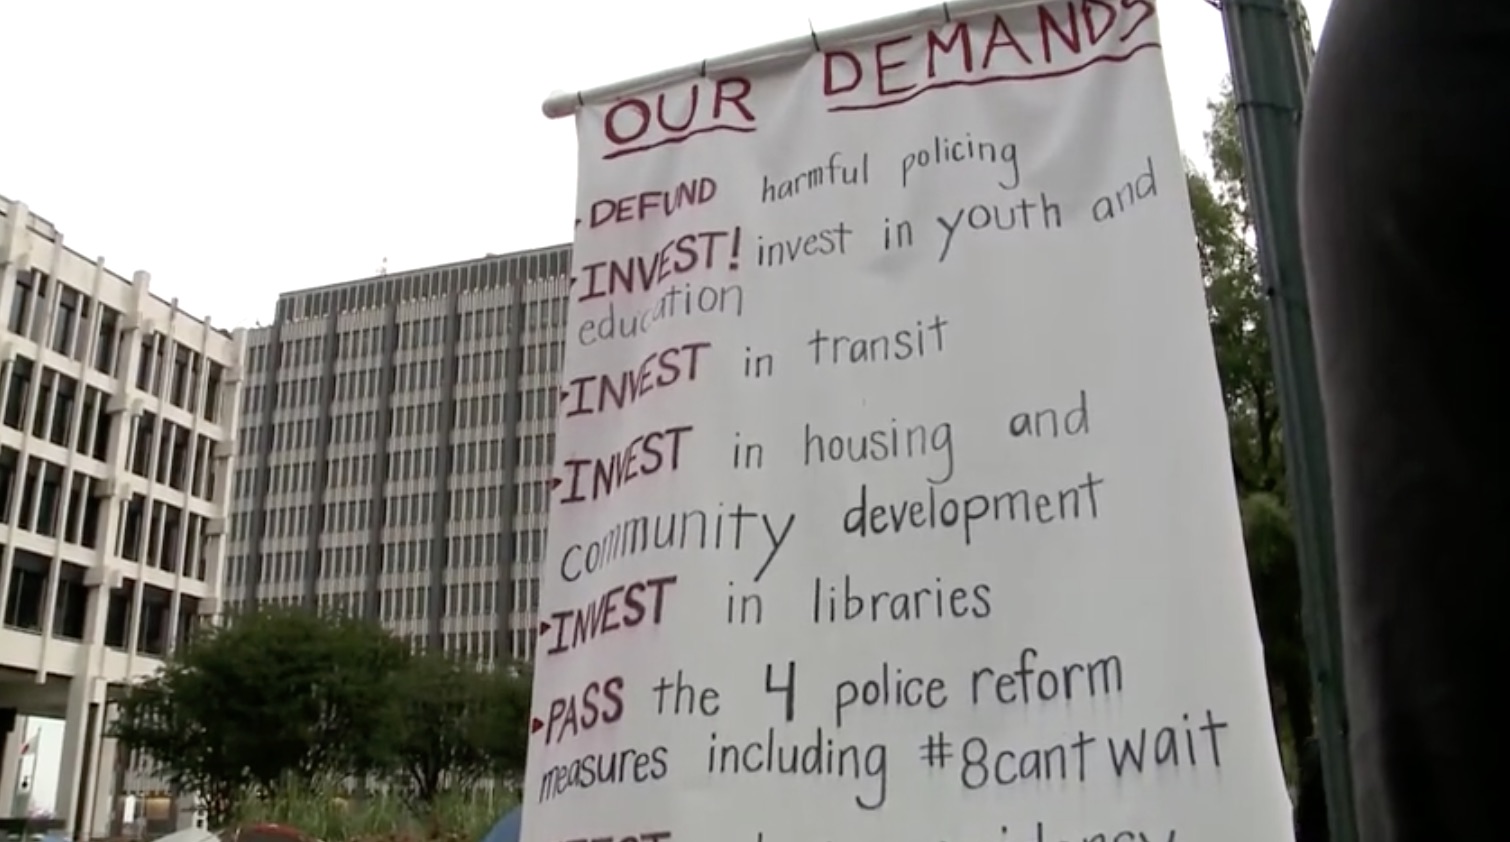 OUR DEMANDS
DEFUND harmful policing
INVEST! invest in youth and
education
INVEST in transit
INVEST in housing and
community development
INVEST in libraries
PASS the 4 police reform
measures including #8cantwait